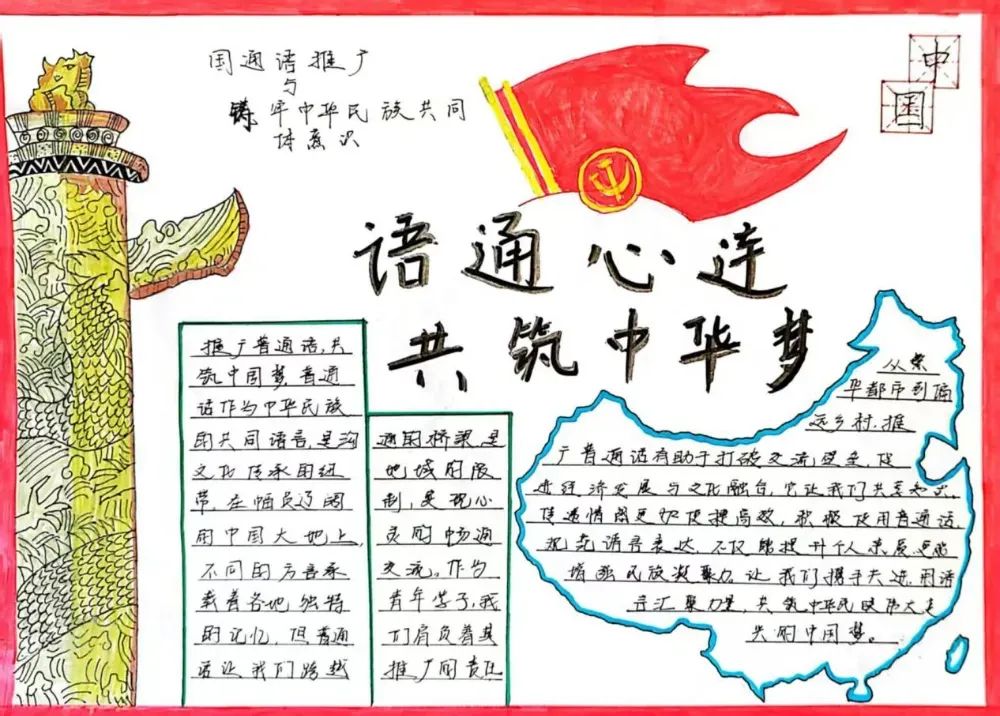 国通语推广
与
铸牢中华民族共同
体意识
中
国
语通心连
共筑中华梦
推广普通话,共
筑中国梦,普通
话作为中华民族
的共同语言,是沟
文化传承的纽
带,在幅员辽阔
的中国大地上,
不同的方言承
载着各地独特
的记忆,但普通
话让我们跨越
通的桥梁是
地域的限
制,实现心
灵的畅通
交流。作为
青年学子,我
们肩负着其
推广的责任
从繁
华都市到偏
远乡村,推
广普通话有助于打破交流壁垒,促
进经济发展与文化融合,它让我们共享知识,
使通情阁更加便捷高效,积极使用普通话,
规范语言表达,不仅能提升个人素质,更能
增强民族凝聚力,让我们携手共进,用语
言汇聚力量,共筑中华民族伟大复
兴的中国梦。